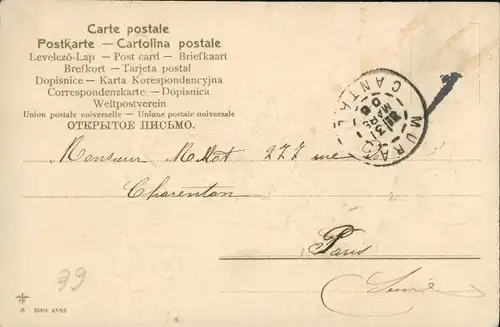 Carte postale
Postkarte — Cartolina postale
Levelező-Lap — Post card — Briefkaart
Brefkort — Tarjeta postal
Dopisnice — Karta Korespondencyjna
Correspondenzkarte — Dopisnica
Weltpostverein
Union postale universelle — Unione postale universale
ОТКРЫТОЕ ПИСЬМО.
MURAT
CANTAL
31
MARS
Monsieur 277 rue
Charenton
Paris
Seine
79